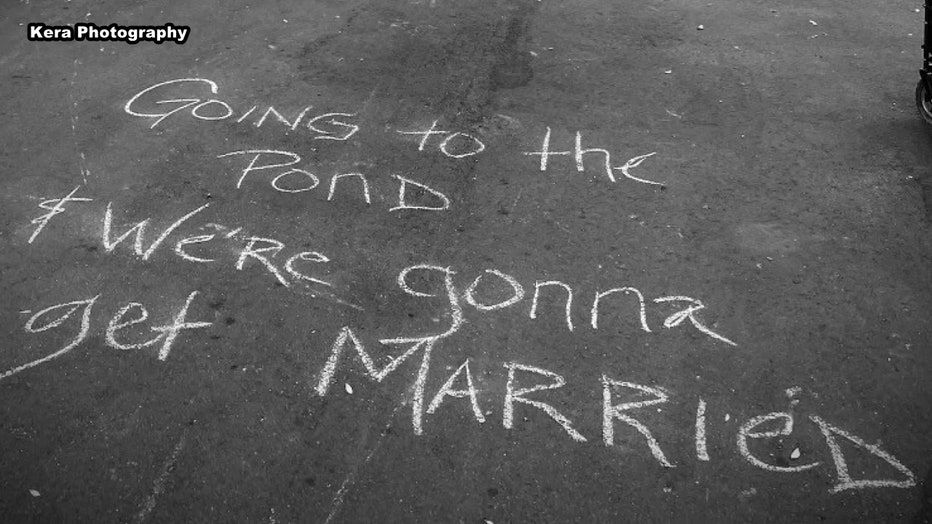 Kera Photography
GOING to the
POND
& We're gonna
get MARRiED